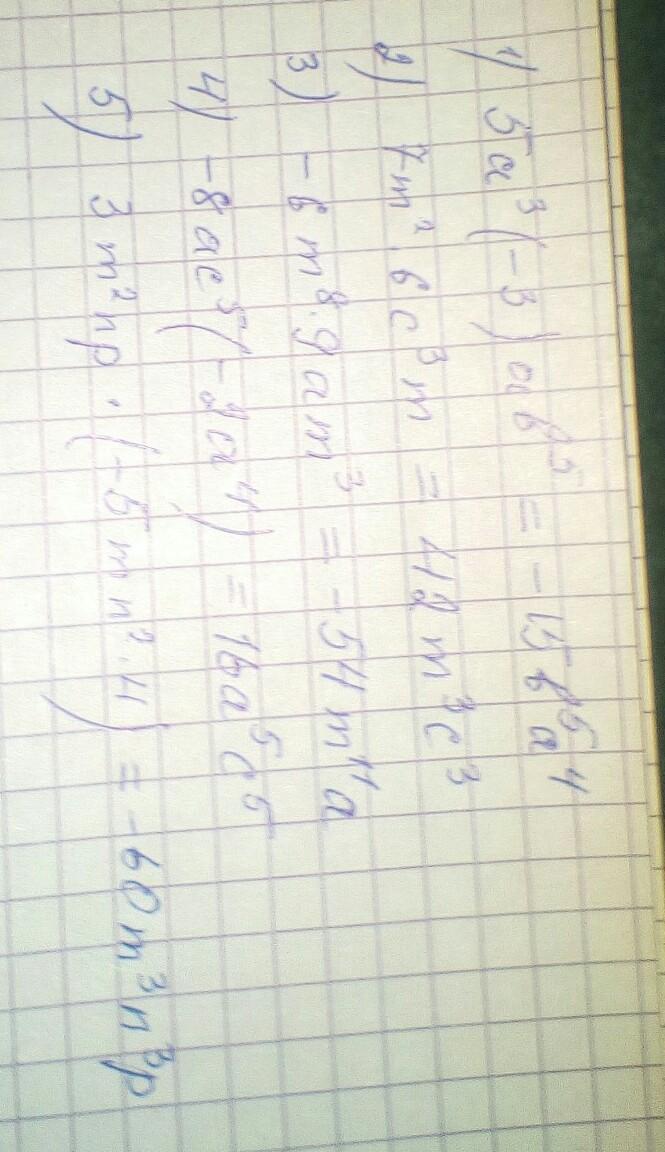 1) 5a³(-3)ab⁵ = -15b⁵a⁴
2) 7m²·6c³m = 42m³c³
3) -6m⁸·9am³ = -54m¹¹a
4) -8ac⁵(-2a⁴) = 16a⁵c⁵
5) 3m²np·(-5mn²·4) = -60m³n³p